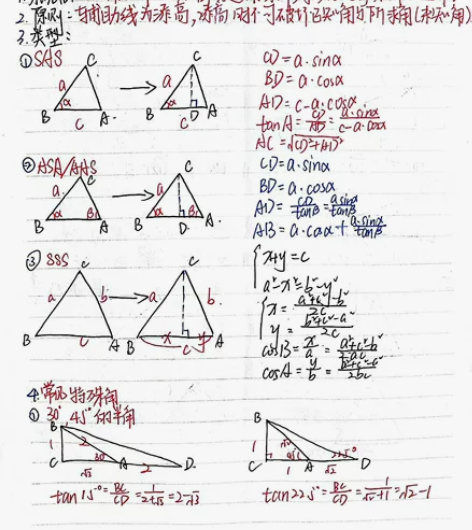 2. 原则:辅助线为添高,添高时不可破坏已知角与所求角(求知角)
3. 类型:
① SAS
C C
a a
α α
B C A. B D A
CD = a·sinα
BD = a·cosα
AD = c-a·cosα
tanA = CD/AD = a·sinα/c-a·cosα
AC = √CD²+AD²
② ASA/AAS
C C
a. a
α β α β
B A B D A.
CD = a·sinα
BD = a·cosα
AD = CD/tanβ = a·sinα/tanβ
AB = a·cosα + a·sinα/tanβ
③ SSS
C C
a b a b.
B c A B x C y A
x+y=c
a²-x²=b²-y²
x = a²+c²-b²/2c
y = b²+c²-a²/2c
cosB = x/a = a²+c²-b²/2ac
cosA = y/b = b²+c²-a²/2bc
4. 常见特殊角
① 30° 45°的半角
B
1 2 30°
C √3 A 2 D.
tan15° = BC/CD = 1/2+√3 = 2-√3
B
1 √2 45° 22.5°
C 1 A D
tan22.5° = BC/CD = 1/√2+1 = √2-1